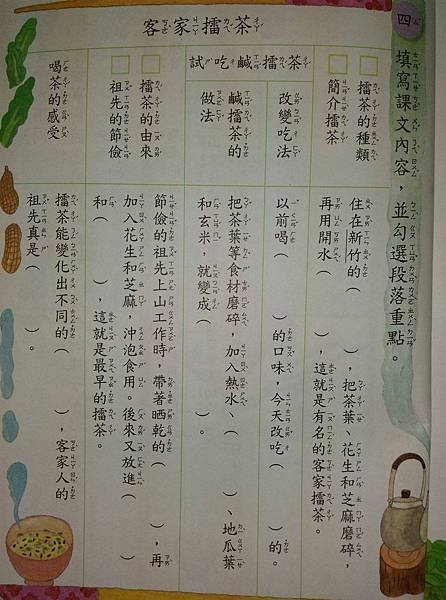 四
填寫課文內容，並勾選段落重點。
客家擂茶
□擂茶的種類
□簡介擂茶
住在新竹的（　　　），把茶葉、花生和芝麻磨碎，
再用開水（　　　），這就是有名的客家擂茶。
試吃鹹擂茶
□改變吃法
□鹹擂茶的
做法
以前喝（　　　）的口味，今天改吃（　　　）的。
把茶葉等食材磨碎，加入熱水、（　　　）、地瓜葉
和玄米，就變成（　　　）。
□擂茶的由來
□祖先的節儉
節儉的祖先上山工作時，帶著晒乾的（　　　），再
加入花生和芝麻，沖泡食用。後來又放進（　　　）
和（　　　），這就是最早的擂茶。
喝茶的感受
擂茶能變化出不同的（　　　），客家人的
祖先真是（　　　）。